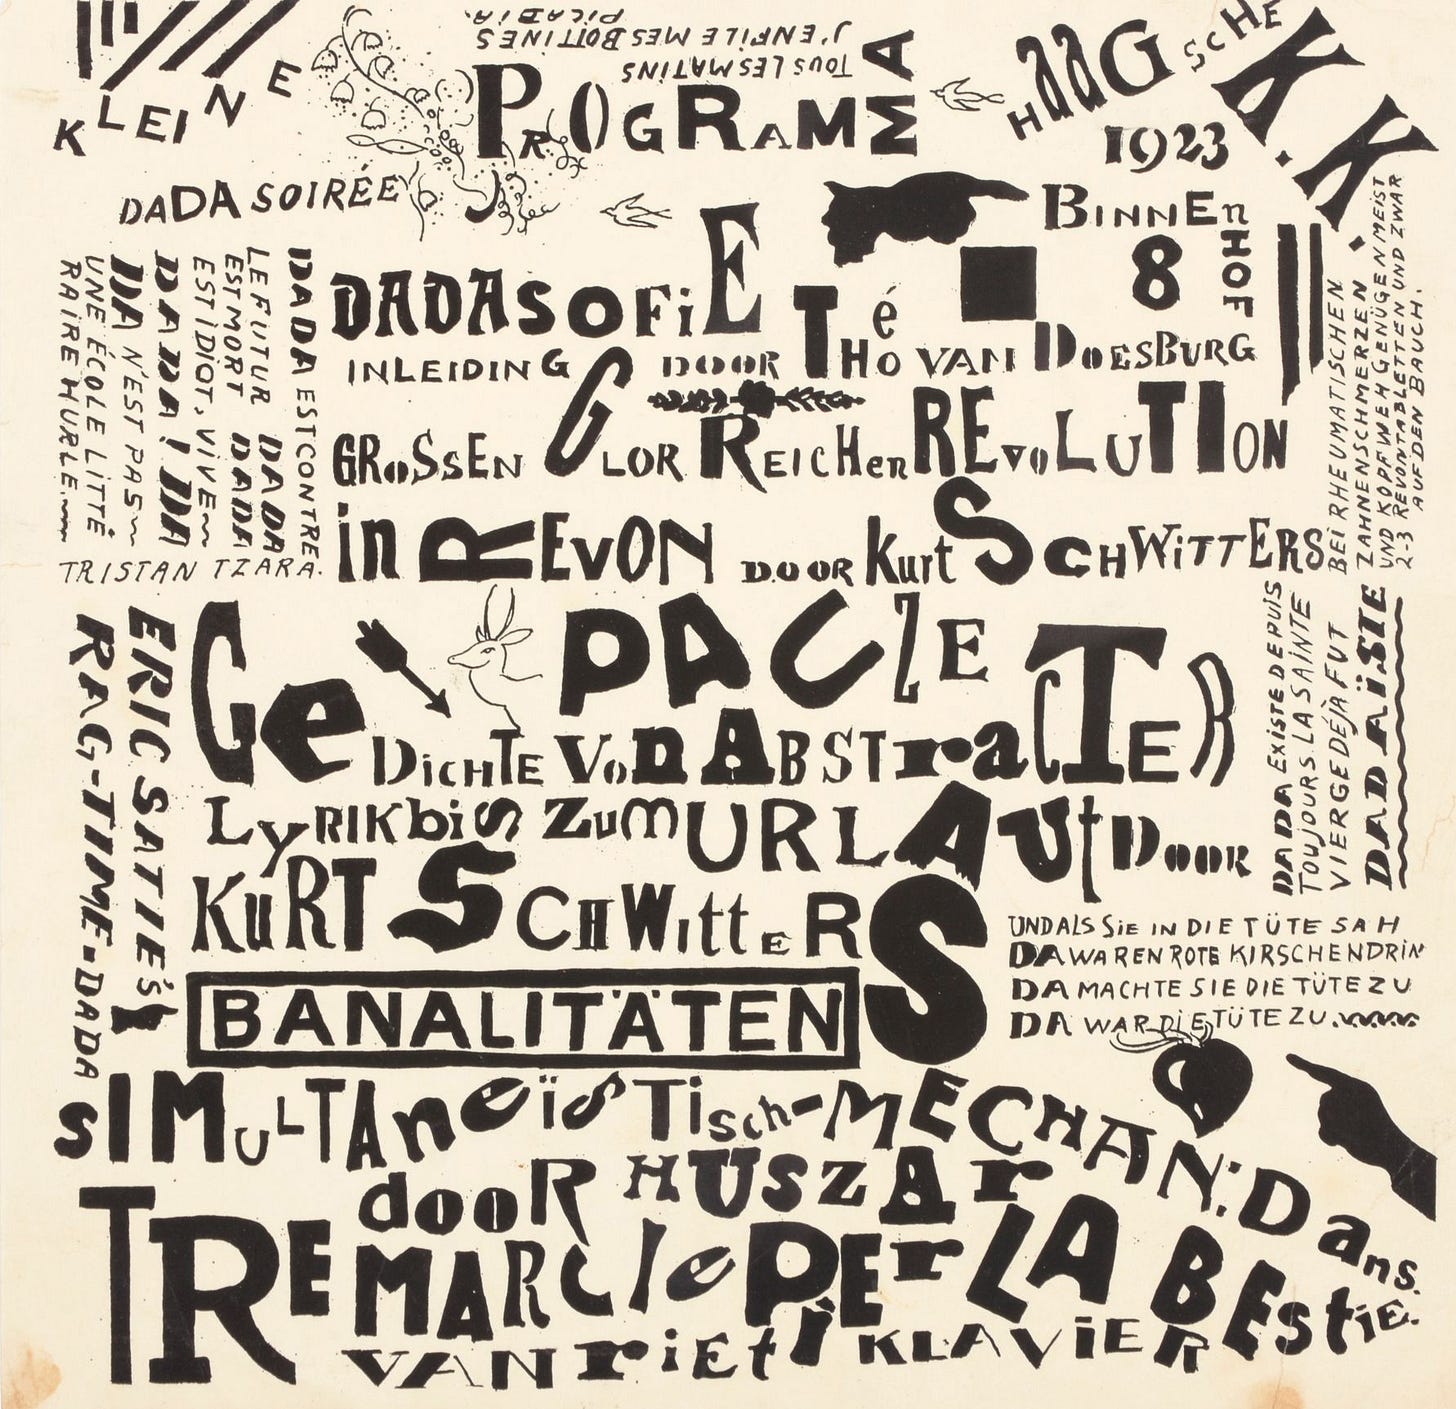 TOUS LES MATINS
J'ENFILE MES BOTTINES
PICABIA.
KLEINE
DADA SOIRÉE
PROGRAMMA
HAAGSCHE K.K.
1923
BINNENHOF
8
DADASOFIE
INLEIDING DOOR THÉO VAN DOESBURG
GROSSEN GLORREICHEN REVOLUTION
in REVON DOOR Kurt SCHWITTERS
DADA EST CONTRE
LE FUTUR DADA
EST MORT DADA
EST IDIOT, VIVE
DADA! DA
DA N'EST PAS
UNE ÉCOLE LITTÉ
RAIRE HURLE.
TRISTAN TZARA.
BEI RHEUMATISCHEN
ZAHNENSCHMERZEN
UND KOPFWEH GENÜGEN MEIST
2-3 REVONTABLETTEN UND ZWAR
AUF DEN BAUCH.
PAUZE
GeDICHTE VOn ABSTraCTER
LyRIK biS ZumURLAUt DOOR
KuRT SCHWittERS
ERIC SATIE'S
RAG-TIME-DADA
DADA EXISTE DEPUIS
TOUJOURS LA SAINTE
VIERGE DÉJÀ FUT
DADAÏSTE
BANALITÄTEN
UND ALS SiE IN DIE TÜTE SAH
DA WAREN ROTE KIRSCHEN DRIN
DA MACHTE SIE DIE TÜTE ZU
DA WAR DIE TÜTE ZU.
SIMULTAneïSTisch-MECHAN: Dans.
dooR HUSZAr
TREMARCIe PEr LA BEStiE.
VAN riEti KLAViER